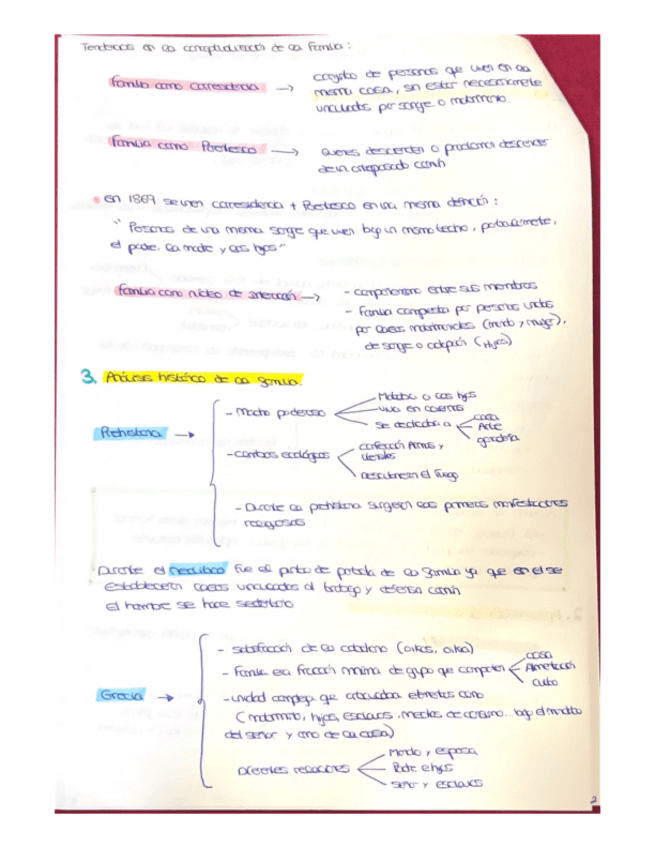 Tendencias en la conceptualización de la familia:
familia como corresidencia → conjunto de personas que viven en la
misma casa, sin estar necesariamente
vinculados por sangre o matrimonio.
familia como Parentesco → quienes descienden o proclaman descender
de un antepasado común
• en 1869 se unen corresidencia + Parentesco en una misma definición:
"Personas de una misma sangre que viven bajo un mismo techo,
el padre, la madre y los hijos"
familia como núcleo de interacción → - compañerismo entre sus miembros
- familia compuesta por personas unidas
por lazos matrimoniales (marido y mujer),
de sangre o adopción (Hijos)
3. Análisis histórico de la familia.
Prehistoria →
- Macho poderoso
Mataba a los hijos
vivía en cavernas
se dedicaba a
caza
Arte
ganadería
- cambios ecológicos
confección Armas y
utensilios
Descubren el fuego
- Durante la prehistoria surgieron las primeras manifestaciones
religiosas
Durante el Neolítico fue el punto de partida de la familia ya que en él se
establecieron lazos vinculados al trabajo y defensa común
el hombre se hace sedentario
Grecia →
- satisfacción de lo cotidiano (oikos, oikia)
- familia era fracción mínima de grupo que comparten
casa
Alimentación
culto
- unidad compleja que articulaba elementos como
(matrimonio, hijos, esclavos, medios de consumo... bajo el mandato
del señor y amo de la casa)
Diferentes relaciones
Marido y esposa
Padre e hijos
señor y esclavos
2